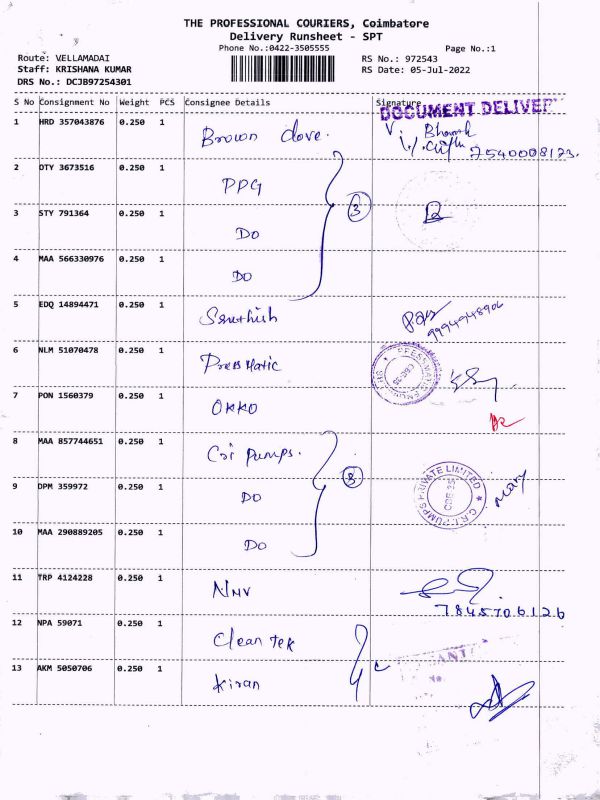 THE PROFESSIONAL COURIERS, Coimbatore
Delivery Runsheet - SPT
Phone No.:0422-3505555
Page No.:1
Route: VELLAMADAI
RS No.: 972543
Staff: KRISHANA KUMAR
RS Date: 05-Jul-2022
DRS No.: DCJB97254301
S No Consignment No Weight PCS Consignee Details Signature
DOCUMENT DELIVER
1 HRD 357043876 0.250 1 Brown dove.
7540008173.
2 DTY 3673516 0.250 1 PPG
3
3 STY 791364 0.250 1 DO
4 MAA 566330976 0.250 1 DO
5 EDQ 14894471 0.250 1
9994948906
6 NLM 51070478 0.250 1 Press Matic
7 PON 1560379 0.250 1 OKKO
8 MAA 857744651 0.250 1 Cri Pumps.
3
C.R.I. PUMPS PRIVATE LIMITED
CBE-35
9 DPM 359972 0.250 1 DO
10 MAA 290889205 0.250 1 DO
11 TRP 4124228 0.250 1 NNV
7845706126
12 NPA 59071 0.250 1 Clean tek
13 AKM 5050706 0.250 1 Kiran